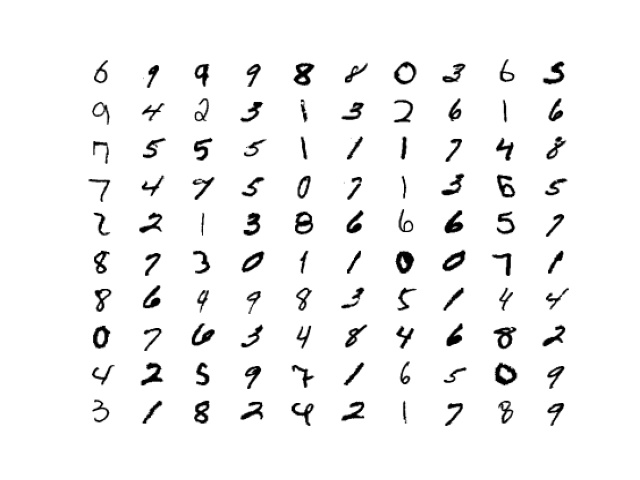 6 9 9 9 8 8 0 3 6 5
9 4 2 3 1 3 2 6 1 6
7 5 5 5 1 1 1 7 4 8
7 4 9 5 0 7 1 3 6 5
2 2 1 3 8 6 6 6 5 7
8 7 3 0 1 1 0 0 7 1
8 6 9 9 8 3 5 1 4 4
0 7 6 3 4 8 4 6 8 2
4 2 5 9 7 1 6 5 0 9
3 1 8 2 4 2 1 7 8 9